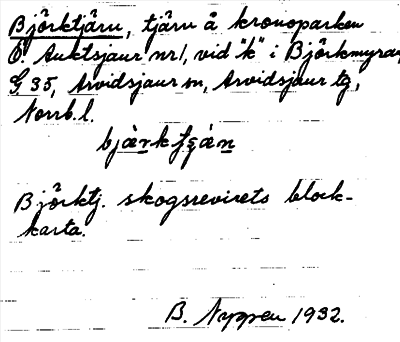 Björktjärn, tjärn å kronoparken
Ö. Auktsjaur nr 1, vid "k" i Björkmyran,
G 35, Arvidsjaur sn, Arvidsjaur tg,
Norrb. l.
Björktj. skogsrevirets block-
karta.
B. Nappen 1932.